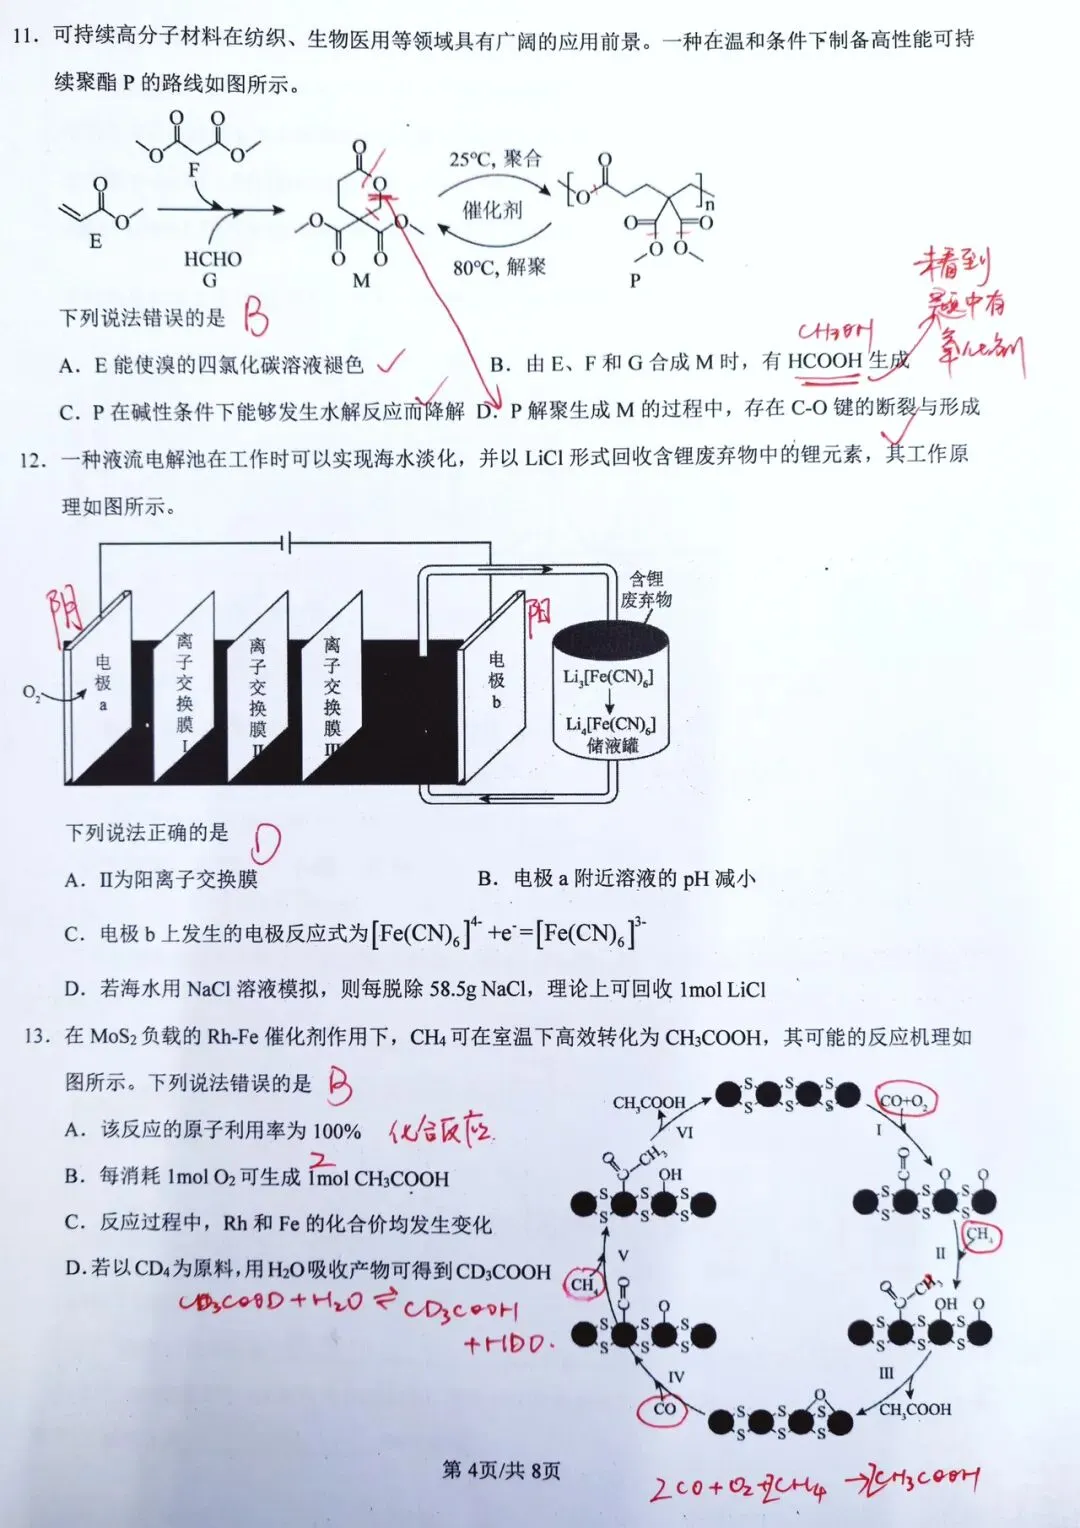 11. 可持续高分子材料在纺织、生物医用等领域具有广阔的应用前景。一种在温和条件下制备高性能可持
续聚酯 P 的路线如图所示。
F
E
HCHO
G
M
25℃, 聚合
催化剂
80℃, 解聚
n
P
下列说法错误的是 B
未看到
题中有
氧化剂
CH3OH
A. E 能使溴的四氯化碳溶液褪色
B. 由 E、F 和 G 合成 M 时，有 HCOOH 生成
C. P 在碱性条件下能够发生水解反应而降解
D. P 解聚生成 M 的过程中，存在 C-O 键的断裂与形成
12. 一种液流电解池在工作时可以实现海水淡化，并以 LiCl 形式回收含锂废弃物中的锂元素，其工作原
理如图所示。
阴
阳
O₂
电极a
离子交换膜I
离子交换膜II
离子交换膜III
电极b
含锂
废弃物
Li₃[Fe(CN)₆]
Li₄[Fe(CN)₆]
储液罐
下列说法正确的是 D
A. II为阳离子交换膜
B. 电极 a 附近溶液的 pH 减小
C. 电极 b 上发生的电极反应式为[Fe(CN)₆]⁴⁻ +e⁻=[Fe(CN)₆]³⁻
D. 若海水用 NaCl 溶液模拟，则每脱除 58.5g NaCl，理论上可回收 1mol LiCl
13. 在 MoS₂ 负载的 Rh-Fe 催化剂作用下，CH₄ 可在室温下高效转化为 CH₃COOH，其可能的反应机理如
图所示。下列说法错误的是 B
A. 该反应的原子利用率为 100% 化合反应
2
B. 每消耗 1mol O₂ 可生成 1mol CH₃COOH
C. 反应过程中，Rh 和 Fe 的化合价均发生变化
D. 若以 CD₄ 为原料，用 H₂O 吸收产物可得到 CD₃COOH
CD3COOD + H2O ⇌ CD3COOH
+ HDO.
CH₃COOH
CO+O₂
VI
I
CH₄
II
V
CH₄
III
IV
CO
CH₃COOH
第 4页/共 8页
2CO + O2 + 2CH4 → 2CH3COOH